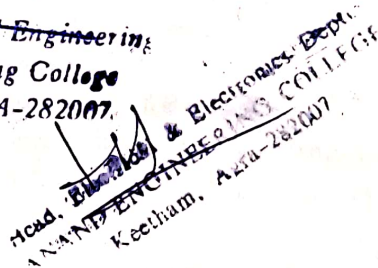 Engineering
g College
A-282007.
Head, & Electronics Deptt.
ANAND ENGINEERING COLLEGE
Keetham, Agra-282007